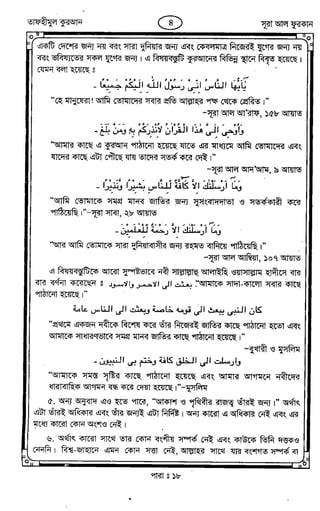 তাফহীমুল কুরআন
৪
সূরা আল ফুরকান
একটি দেশের জন্য নয় বরং সারা দুনিয়ার জন্য এবং কেবলমাত্র নিজেরই যুগের জন্য নয়
বরং ভবিষ্যতের সকল যুগের জন্য। এ বিষয়বস্তুটি কুরআনের বিভিন্ন স্থানে বিবৃত হয়েছে।
যেমন বলা হয়েছে ঃ
يٰٓاَيُّهَا النَّاسُ اِنِّى رَسُوْلُ اللّٰهِ اِلَيْكُمْ جَمِيْعًا -
"হে মানুষেরা! আমি তোমাদের সবার প্রতি আল্লাহর পক্ষ থেকে প্রেরিত।"
-সূরা আল আ'রাফ, ১৫৮ আয়াত
وَاُوْحِىَ اِلَىَّ هٰذَا الْقُرْاٰنُ لِاُنْذِرَكُمْ بِهٖ وَمَنْۢ بَلَغَ -
"আমার কাছে এ কুরআন পাঠানো হয়েছে যাতে এর মাধ্যমে আমি তোমাদের এবং
যাদের কাছে এটা পৌঁছে যায় তাদের সতর্ক করে দেই।"
-সূরা আল আন'আম, ৯ আয়াত
وَمَآ اَرْسَلْنٰكَ اِلاَّ كَآفَّةً لِّلنَّاسِ بَشِيْرًا وَّنَذِيْرًا -
"আমি তোমাকে সমগ্র মানব জাতির জন্য সুসংবাদদাতা ও সতর্ককারী করে
পাঠিয়েছি।"-সূরা সাবা, ২৮ আয়াত
وَمَآ اَرْسَلْنٰكَ اِلاَّ رَحْمَةً لِّلْعٰلَمِيْنَ -
"আর আমি তোমাকে সারা দুনিয়াবাসীর জন্য রহমত বানিয়ে পাঠিয়েছি।"
-সূরা আল আম্বিয়া, ১০৭ আয়াত
এ বিষয়বস্তুটিকে আরো সুস্পষ্টভাবে নবী সাল্লাল্লাহু আলাইহি ওয়াসাল্লাম হাদীসে বার
বার বর্ণনা করেছেন ঃ بعثت الى الاحمر والاسود "আমাকে সাদা-কালো সবার কাছে
পাঠানো হয়েছে।"
كان النبى يبعث الى قومه خاصة وبعثت الى الناس عامة
"প্রথমে একজন নবীকে বিশেষ করে তাঁর নিজেরই জাতির কাছে পাঠানো হতো এবং
আমাকে সাধারণভাবে সমগ্র মানব জাতির কাছে পাঠানো হয়েছে।"
-বুখারী ও মুসলিম
وارسلت الى الخلق كافة وختم بى النبيون -
"আমাকে সমগ্র সৃষ্টির কাছে পাঠানো হয়েছে এবং আমার আগমনে নবীদের
ধারাবাহিক আগমন বন্ধ করে দেয়া হয়েছে।"-মুসলিম
৫. অন্য অনুবাদ এও হতে পারে, "আকাশ ও পৃথিবীর রাজত্ব তাঁরই জন্য।" অর্থাৎ
এটা তাঁরই অধিকার এবং তাঁর জন্যই এটা নির্দিষ্ট। অন্য কারো এ অধিকার নেই এবং এর
মধ্যে কারো কোন অংশও নেই।
৬. অর্থাৎ কারো সাথে তার কোন বংশীয় সম্পর্ক নেই এবং কাউকে তিনি দত্তকও
নেননি। বিশ্ব-জাহানে এমন কোন সত্তা নেই, আল্লাহর সাথে যার বংশগত সম্পর্ক বা
পারা ঃ ১৮